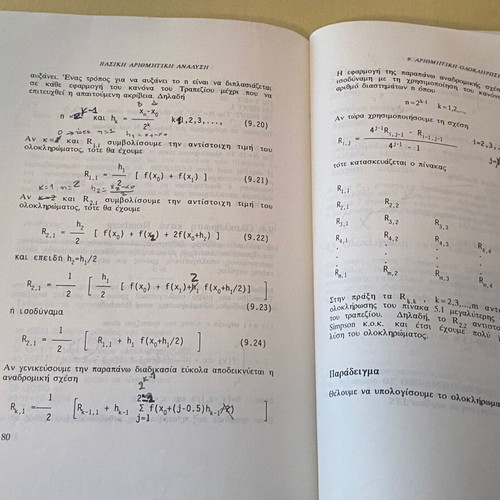 ΒΑΣΙΚΗ ΑΡΙΘΜΗΤΙΚΗ ΑΝΑΛΥΣΗ
αυξάνει. Ένας τρόπος για να αυξάνει το n είναι να διπλασιάζεται
σε κάθε εφαρμογή του κανόνα του Τραπεζίου μέχρι που να
επιτευχθεί η απαιτούμενη ακρίβεια. Δηλαδή
n = 2^k-1 και h_k = (x_n-x_0)/2^k k=1,2,3,..., (9.20)
Αν κ= και R_1,1 συμβολίσουμε την αντίστοιχη τιμή του
ολοκληρώματος, τότε θα έχουμε
R_1,1 = h_1/2 [ f(x_0) + f(x_1) ] (9.21)
κ=1 n=2 h_2=
Αν κ=2 και R_2,1 συμβολίσουμε την αντίστοιχη τιμή του
ολοκληρώματος, τότε θα έχουμε
R_2,1 = h_2/2 [ f(x_0) + f(x_2) + 2f(x_0+h_2) ] (9.22)
και επειδή h_2=h_1/2
R_2,1 = 1/2 [ h_1/2 [ f(x_0) + f(x_1)+2 f(x_0+h_1/2)] ]
(9.23)
ή ισοδύναμα
R_2,1 = 1/2 [ R_1,1 + h_1 f(x_0+h_1/2) ] (9.24)
Αν γενικεύσουμε την παραπάνω διαδικασία εύκολα αποδεικνύεται η
αναδρομική σχέση
R_k,1 = 1/2 [ R_k-1,1 + h_k-1 Σ f(x_0+(j-0.5)h_k-1) ]
j=1
80
9. ΑΡΙΘΜΗΤΙΚΗ ΟΛΟΚΛΗΡΩΣΗ
Η εφαρμογή της παραπάνω αναδρομικής σχέσης
ισοδύναμη με τη χρησιμοποίηση του κανόνα
αριθμό διαστημάτων n όπου
n=2^k-1 k=1,2,...
Αν τώρα χρησιμοποιήσουμε τη σχέση
R_i,j = (4^j-1 R_i,j-1 - R_i-1,j-1)/(4^j-1 - 1) i=2,3,
τότε κατασκευάζεται ο πίνακας
R_1,1
R_2,1 R_2,2
R_3,1 R_3,2 R_3,3
R_4,1 R_4,2 R_4,3 R_4,4
. . . .
R_m,1 R_m,2 R_m,3 R_m,4
Στην πράξη τα R_k,k , k=2,3,...,m αντι
ολοκλήρωσης του πίνακα 5.1 μεγαλύτερης
του τραπεζίου. Δηλαδή, το R_2,2 αντιστο
Simpson κ.ο.κ. και έτσι έχουμε πολύ
λύση του ολοκληρώματος.
Παράδειγμα
Θέλουμε να υπολογίσουμε το ολοκλήρωμα